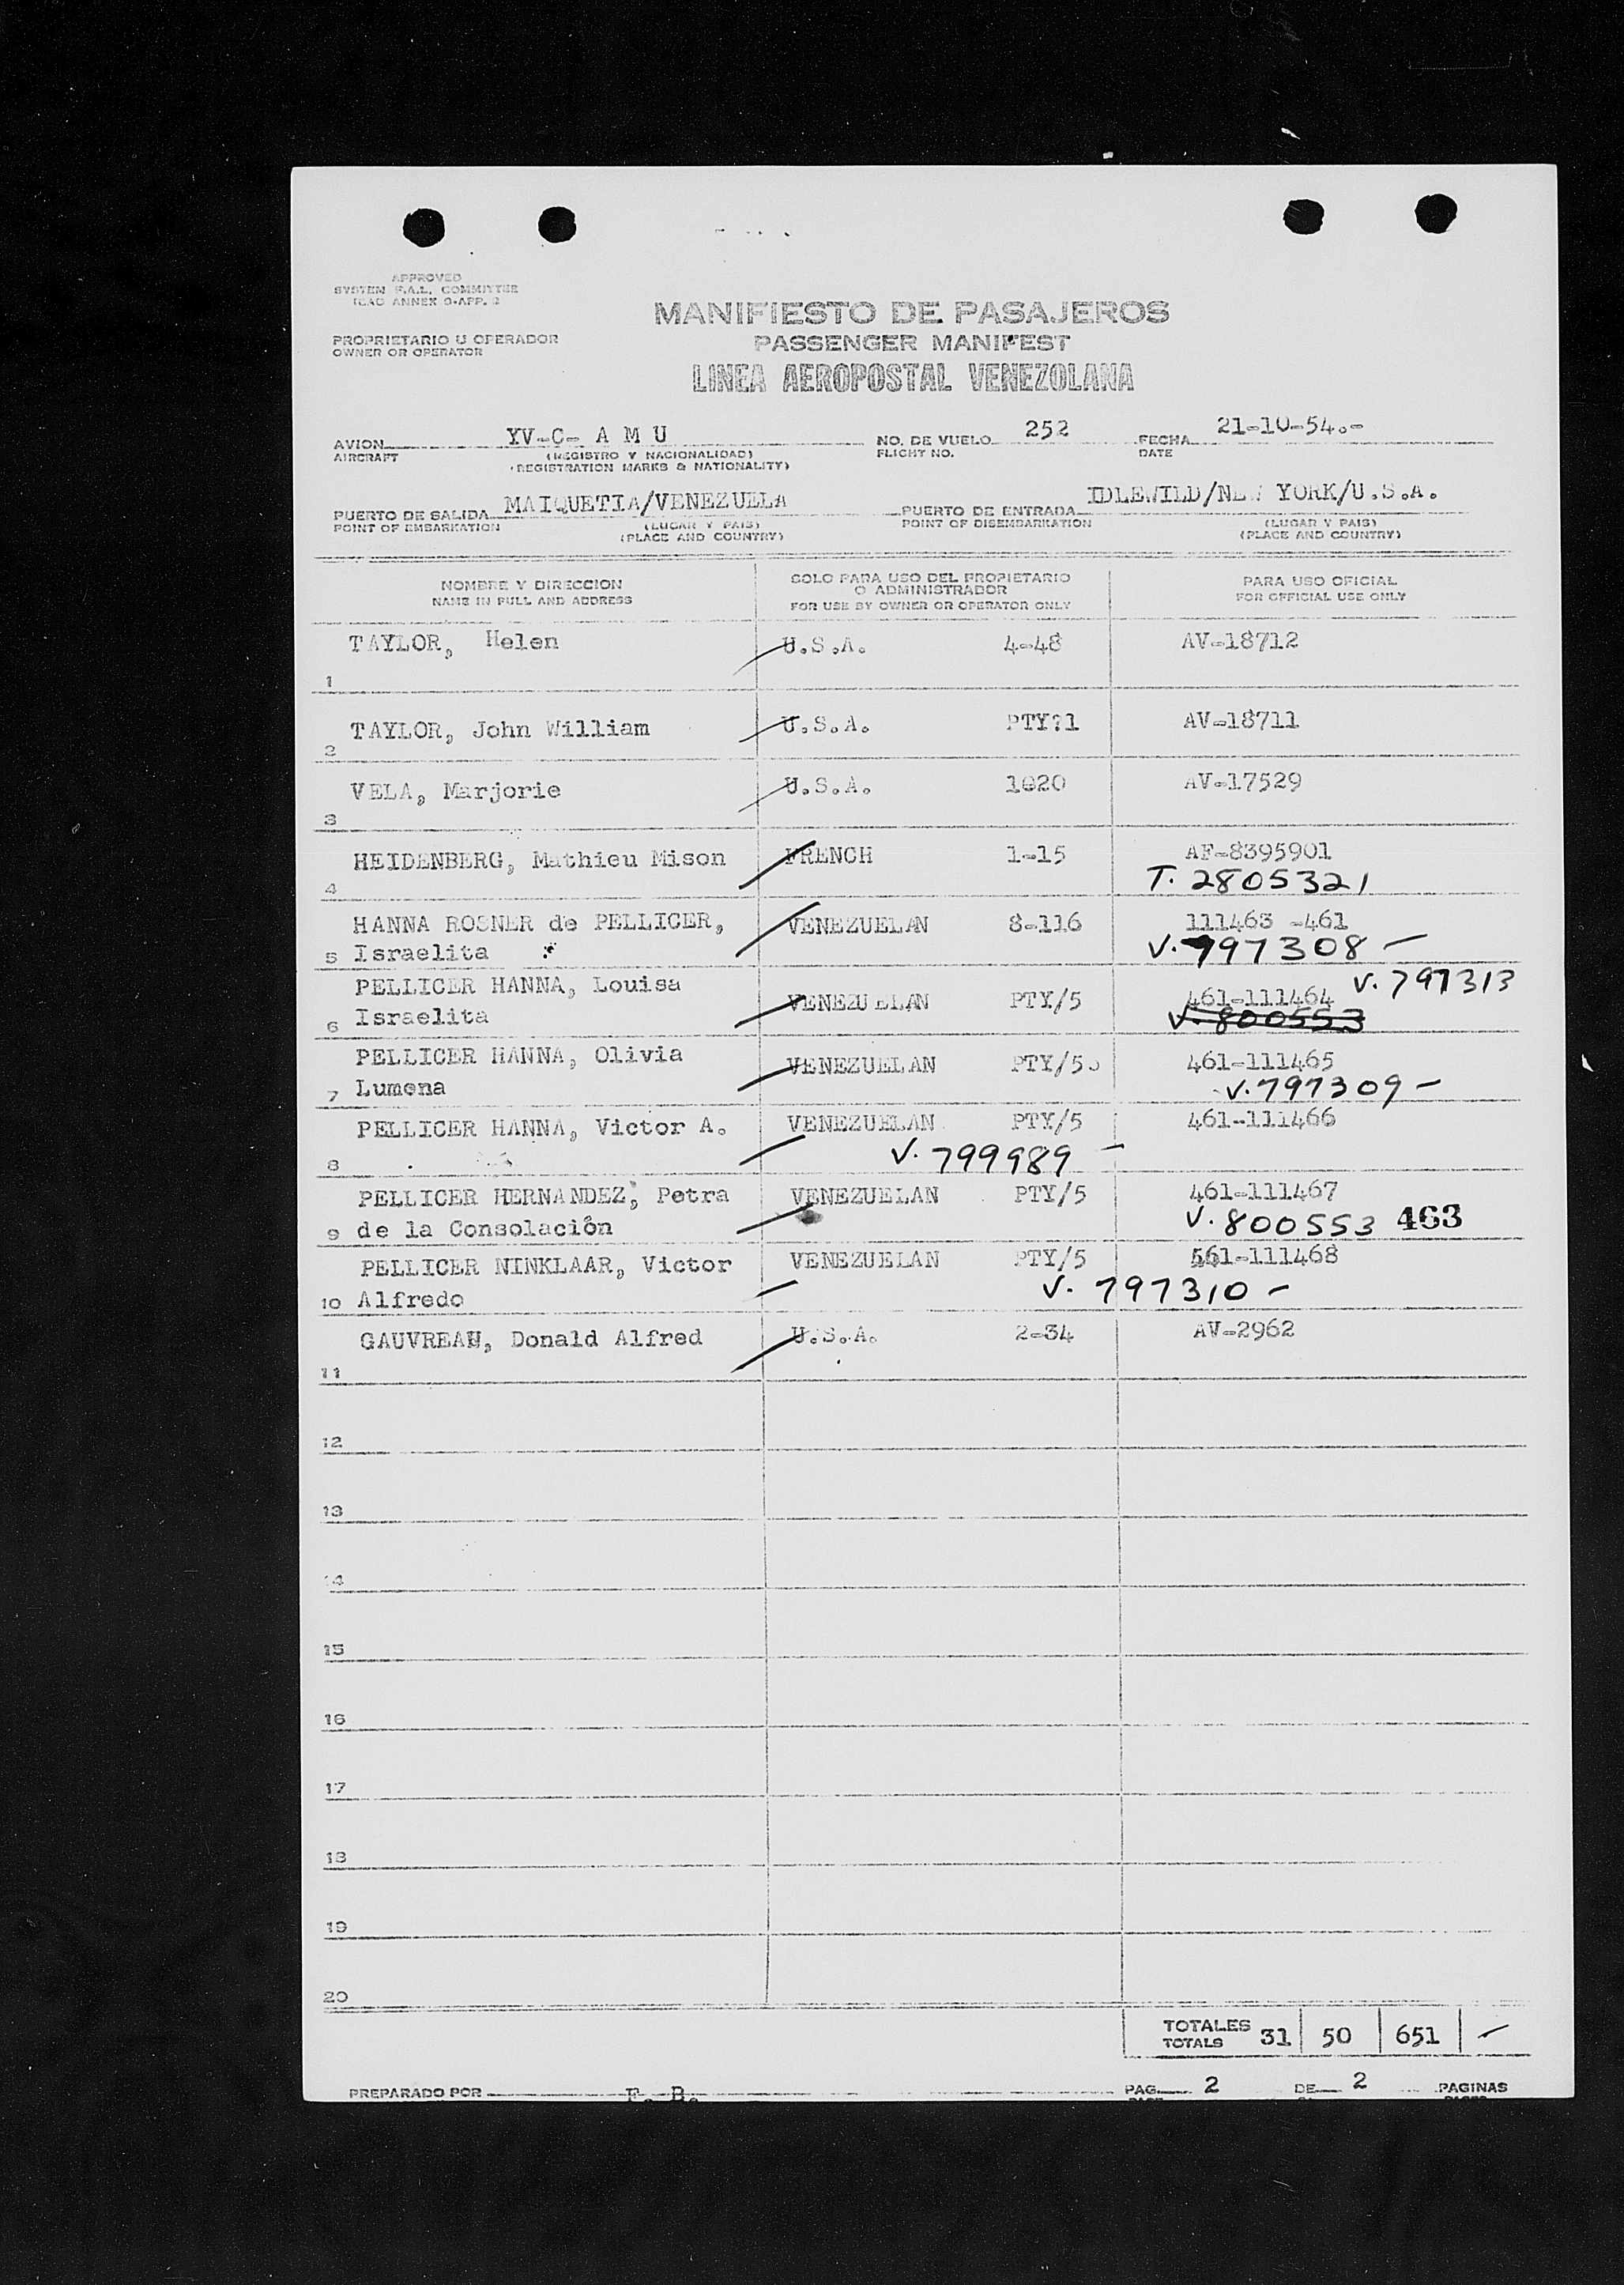 APPROVED
SYSTEM F.A.L. COMMITTEE
ICAO ANNEX 9-APP. 2
MANIFIESTO DE PASAJEROS
PROPRIETARIO U OPERADOR
OWNER OR OPERATOR
PASSENGER MANIFEST
LINEA AEROPOSTAL VENEZOLANA
AVION YV-C- A M U NO. DE VUELO 252 FECHA 21-10-54.-
AIRCRAFT (REGISTRO Y NACIONALIDAD) FLIGHT NO. DATE
(REGISTRATION MARKS & NATIONALITY)
PUERTO DE SALIDA MAIQUETIA/VENEZUELA PUERTO DE ENTRADA IDLEWILD/NEW YORK/U.S.A.
POINT OF EMBARKATION (LUGAR Y PAIS) POINT OF DISEMBARKATION (LUGAR Y PAIS)
(PLACE AND COUNTRY) (PLACE AND COUNTRY)
NOMBRE Y DIRECCION SOLO PARA USO DEL PROPIETARIO PARA USO OFICIAL
O ADMINISTRADOR
NAME IN FULL AND ADDRESS FOR USE BY OWNER OR OPERATOR ONLY FOR OFFICIAL USE ONLY
TAYLOR, Helen U.S.A. 4-48 AV-18712
1
TAYLOR, John William U.S.A. PTY?1 AV-18711
2
VELA, Marjorie U.S.A. 1020 AV-17529
3
HEIDENBERG, Mathieu Mison FRENCH 1-15 AF-8395901
4 T. 2805321
HANNA ROSNER de PELLICER, VENEZUELAN 8-116 111463 -461
5 Israelita V. 797308 -
PELLICER HANNA, Louisa V. 797313
VENEZUELAN PTY/5 461-111464
6 Israelita V. 800553
PELLICER HANNA, Olivia VENEZUELAN PTY/5. 461-111465
7 Lumena V. 797309 -
PELLICER HANNA, Victor A. VENEZUELAN PTY/5 461-111466
8 V. 799989 -
PELLICER HERNANDEZ, Petra VENEZUELAN PTY/5 461-111467
9 de la Consolación V. 800553 463
PELLICER NINKLAAR, Victor VENEZUELAN PTY/5 561-111468
10 Alfredo V. 797310 -
GAUVREAU, Donald Alfred U.S.A. 2-34 AV-2962
11
12
13
14
15
16
17
18
19
20
TOTALES 31 50 651 -
TOTALS
PREPARADO POR F. B. PAG. 2 DE 2 PAGINAS